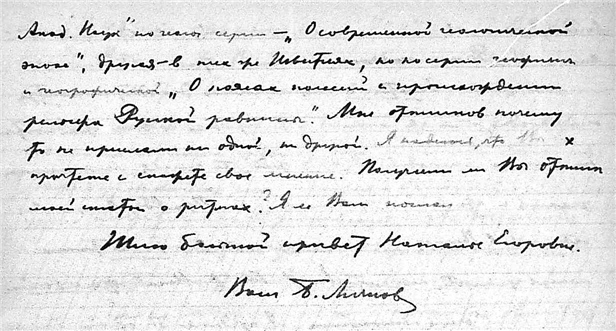 Акад. Наук" по геол. серии – „О современной геологической
эпохе", другая – в тех же Известиях, но по серии геофизич.
и географической „О поясах поднятий и происхождении
рельефа Русской равнины". Мне оттисков почему
то не прислали ни одной, ни другой. Я надеюсь, что Вы
прочтете и скажете свое мнение. Получили ли Вы оттиск
моей статьи о ритмах? Я ее Вам послал
Шлю большой привет Наталье Егоровне.
Ваш Б. Личков